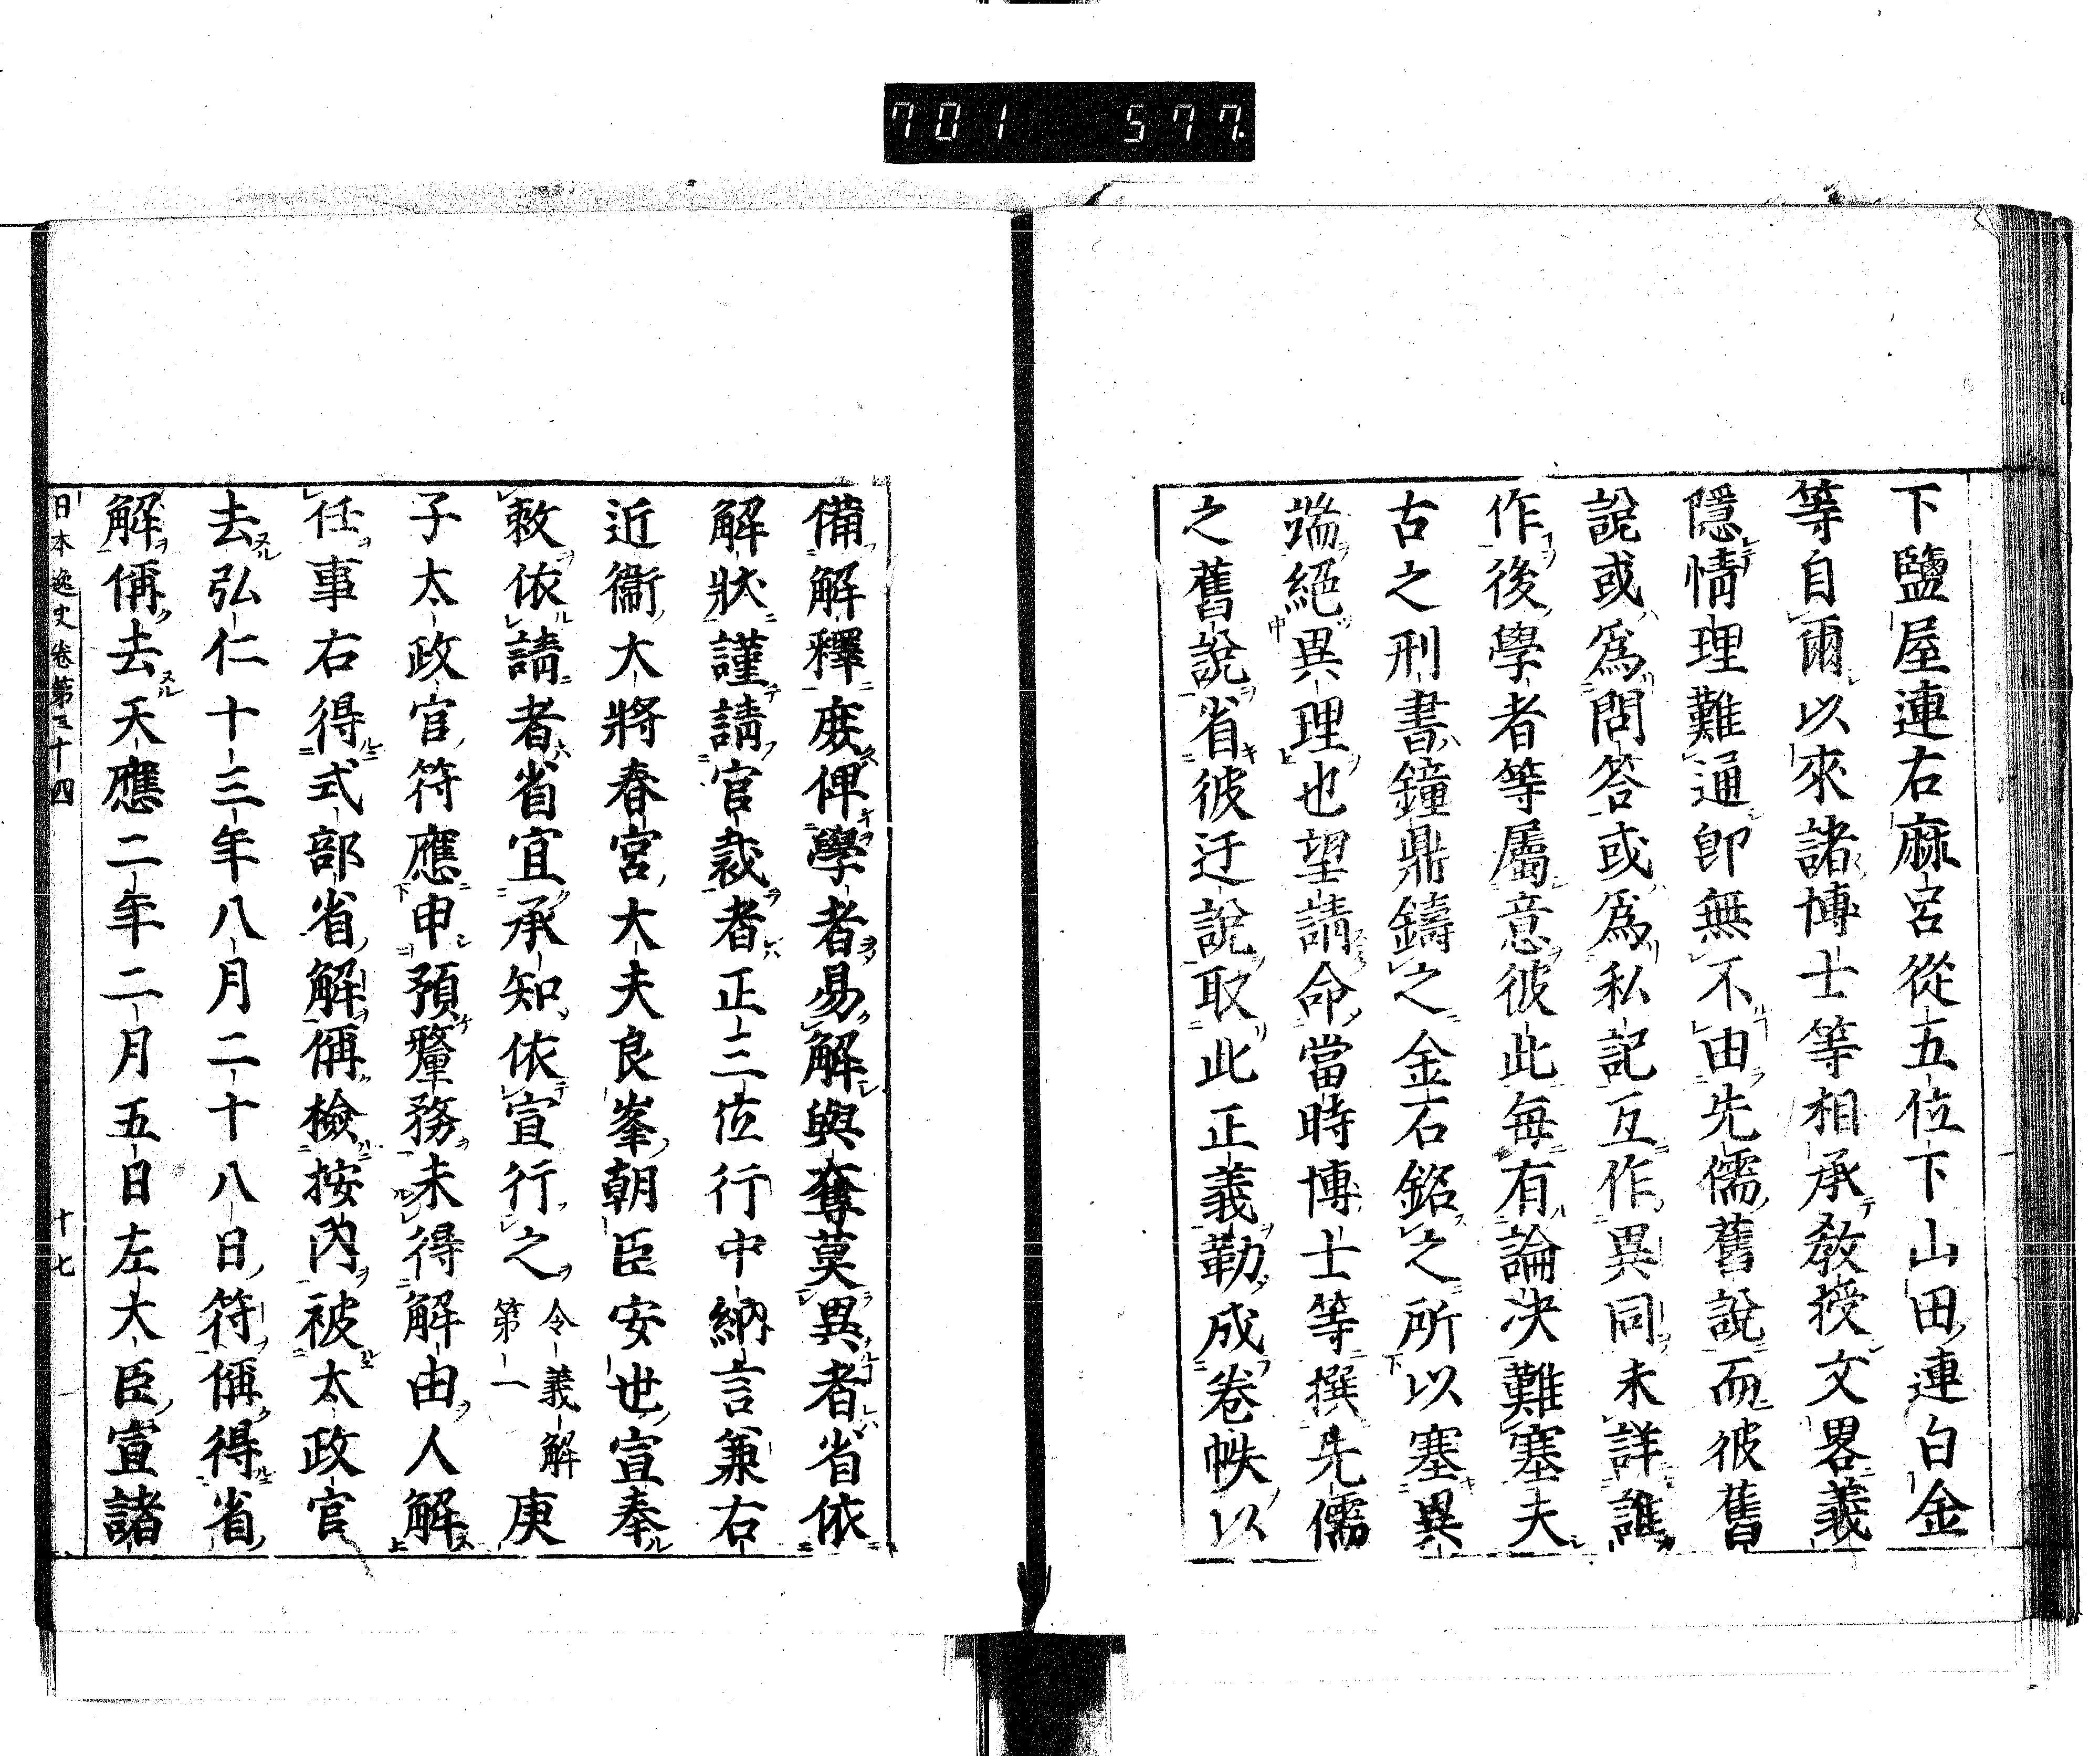 701 577.
下鹽屋連右麻呂從五位下山田連白金
等自爾以來諸博士等相承教授文畧義
隱情理難通卽無不由先儒舊說而彼舊
說或爲問答或爲私記互作異同未詳誰
作後學者等屬意彼此每有論决難塞夫
古之刑書鐘鼎鑄之金石銘之所以塞異
端絕異理也望請命當時博士等撰先儒
之舊說省彼迂說取此正義勒成卷帙以
備解釋庻俾學者易解與奪莫異者省依
解狀謹請官裁者正三位行中納言兼右
近衞大將春宮大夫良峯朝臣安世宣奉
敕依請者省宜承知依宣行之令義解第一庚
子太政官符應申預釐務未得解由人解
任事右得式部省解偁檢按內被太政官
去弘仁十三年八月二十八日符偁得省
解偁去天應二年二月五日左大臣宣諸
日本逸史卷第三十四 十七